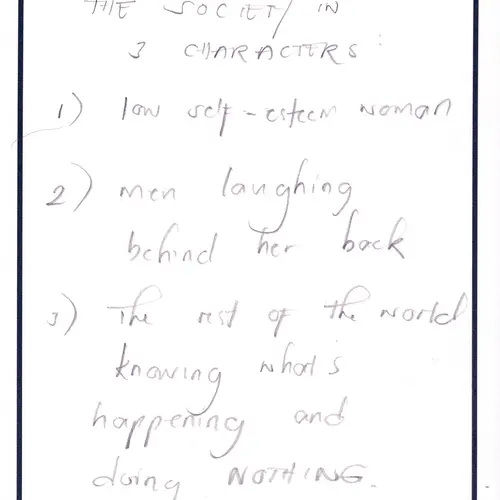 THE SOCIETY IN
3 CHARACTERS:
1) low self-esteem woman
2) men laughing
behind her back
3) The rest of the world
knowing what's
happening and
doing NOTHING.